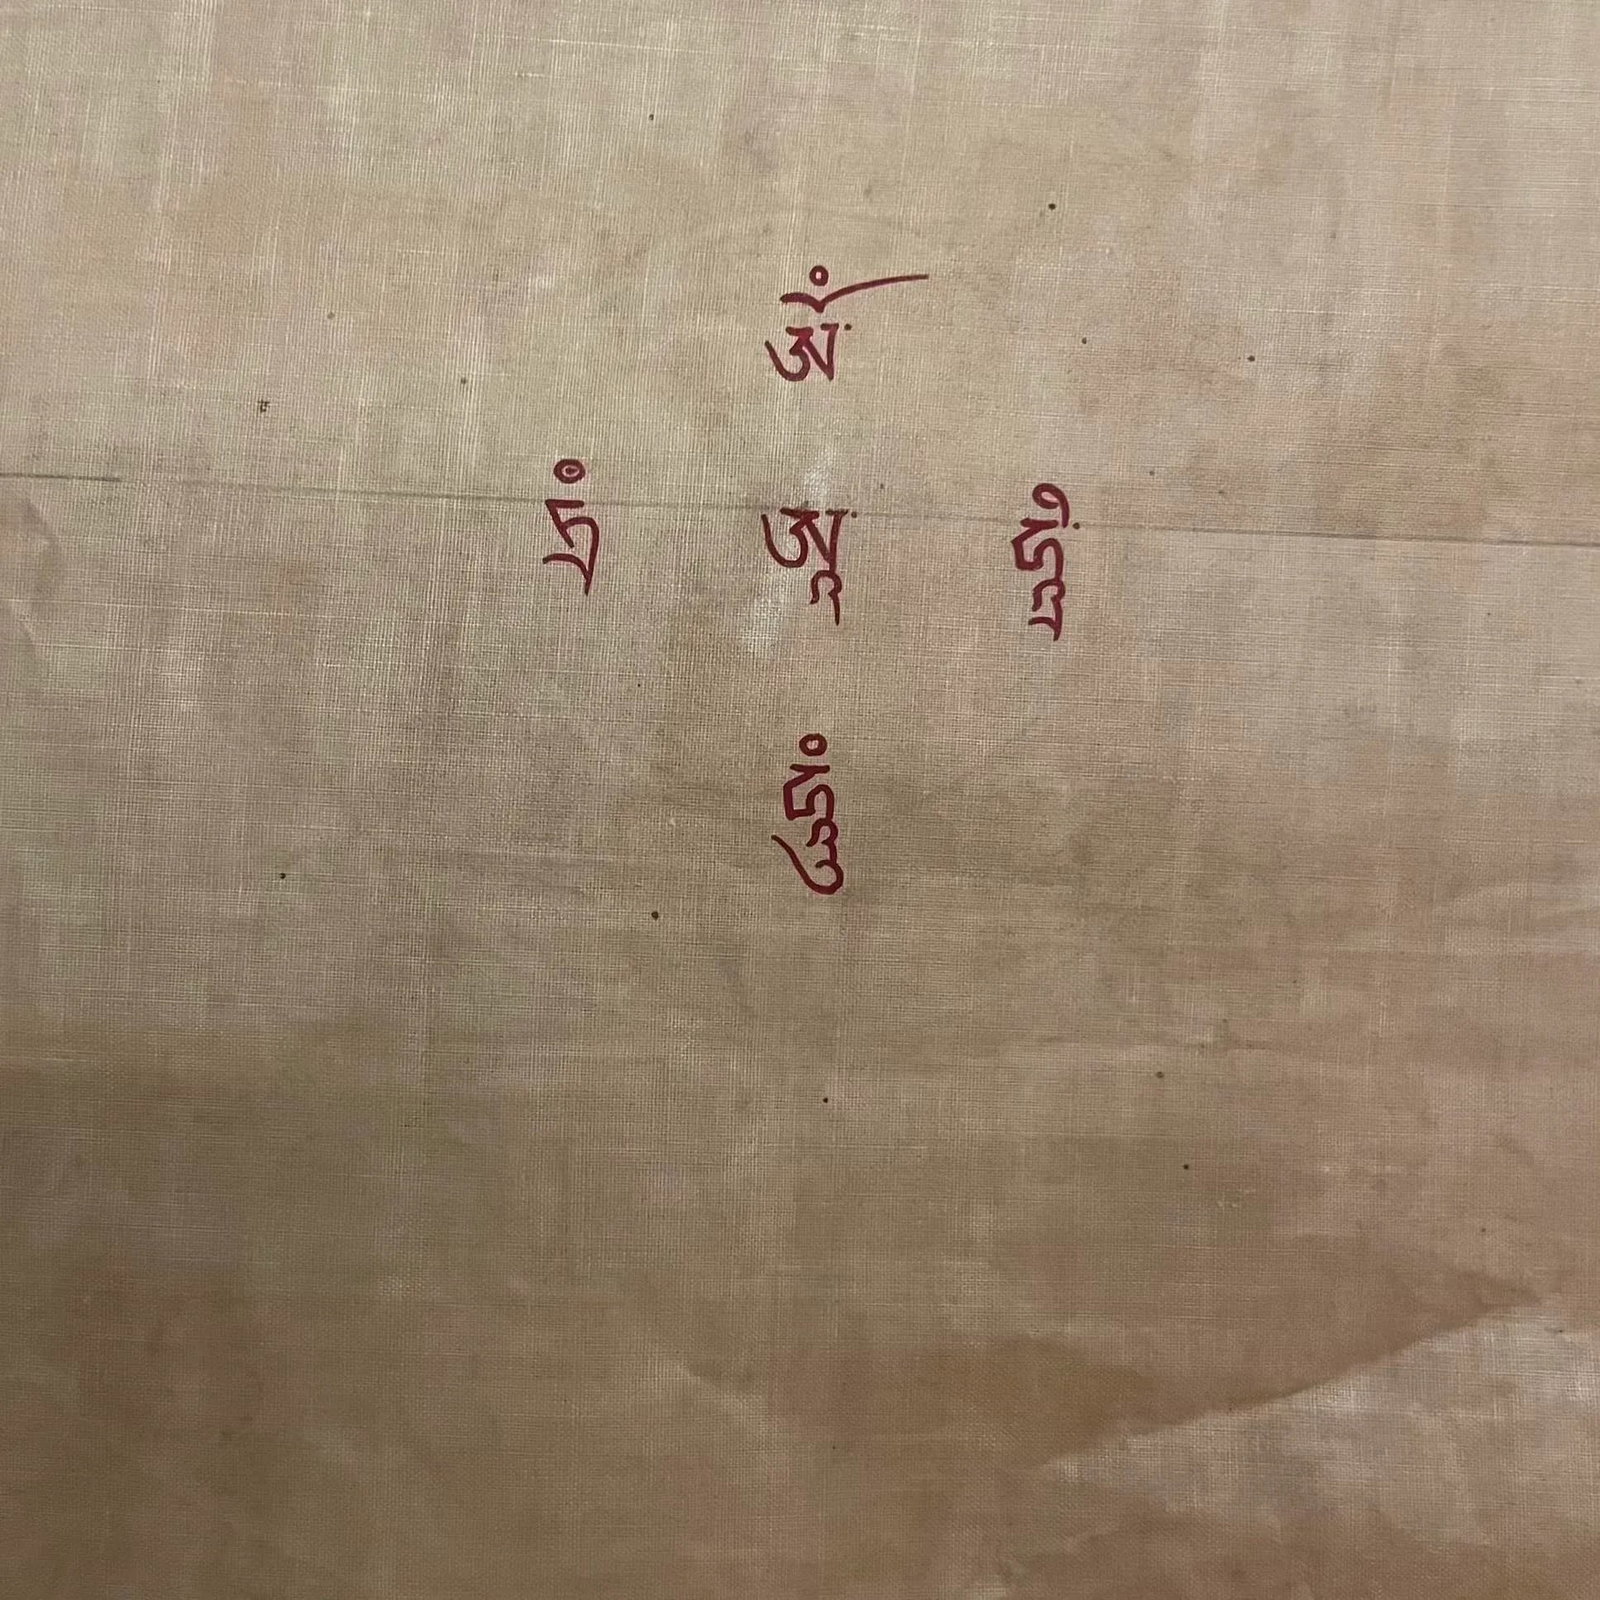 ཨོཾ་
ཏྲཾ ཨཱ་ ཧྲཱི་
ཧཱུཾ